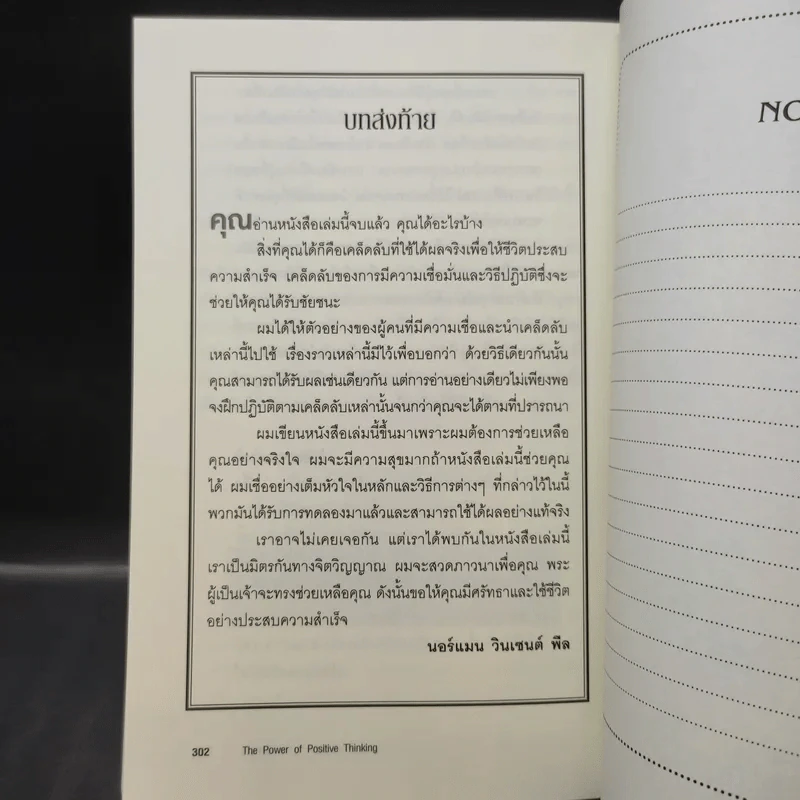 บทส่งท้าย
คุณอ่านหนังสือเล่มนี้จบแล้ว คุณได้อะไรบ้าง
สิ่งที่คุณได้ก็คือเคล็ดลับที่ใช้ได้ผลจริงเพื่อให้ชีวิตประสบ
ความสำเร็จ เคล็ดลับของการมีความเชื่อมั่นและวิธีปฏิบัติซึ่งจะ
ช่วยให้คุณได้รับชัยชนะ
ผมได้ให้ตัวอย่างของผู้คนที่มีความเชื่อและนำเคล็ดลับ
เหล่านี้ไปใช้ เรื่องราวเหล่านี้มีไว้เพื่อบอกว่า ด้วยวิธีเดียวกันนั้น
คุณสามารถได้รับผลเช่นเดียวกัน แต่การอ่านอย่างเดียวไม่เพียงพอ
จงฝึกปฏิบัติตามเคล็ดลับเหล่านั้นจนกว่าคุณจะได้ตามที่ปรารถนา
ผมเขียนหนังสือเล่มนี้ขึ้นมาเพราะผมต้องการช่วยเหลือ
คุณอย่างจริงใจ ผมจะมีความสุขมากถ้าหนังสือเล่มนี้ช่วยคุณ
ได้ ผมเชื่ออย่างเต็มหัวใจในหลักและวิธีการต่างๆ ที่กล่าวไว้ในนี้
พวกมันได้รับการทดลองมาแล้วและสามารถใช้ได้ผลอย่างแท้จริง
เราอาจไม่เคยเจอกัน แต่เราได้พบกันในหนังสือเล่มนี้
เราเป็นมิตรกันทางจิตวิญญาณ ผมจะสวดภาวนาเพื่อคุณ พระ
ผู้เป็นเจ้าจะทรงช่วยเหลือคุณ ดังนั้นขอให้คุณมีศรัทธาและใช้ชีวิต
อย่างประสบความสำเร็จ
นอร์แมน วินเซนต์ พีล
302 The Power of Positive Thinking
NO